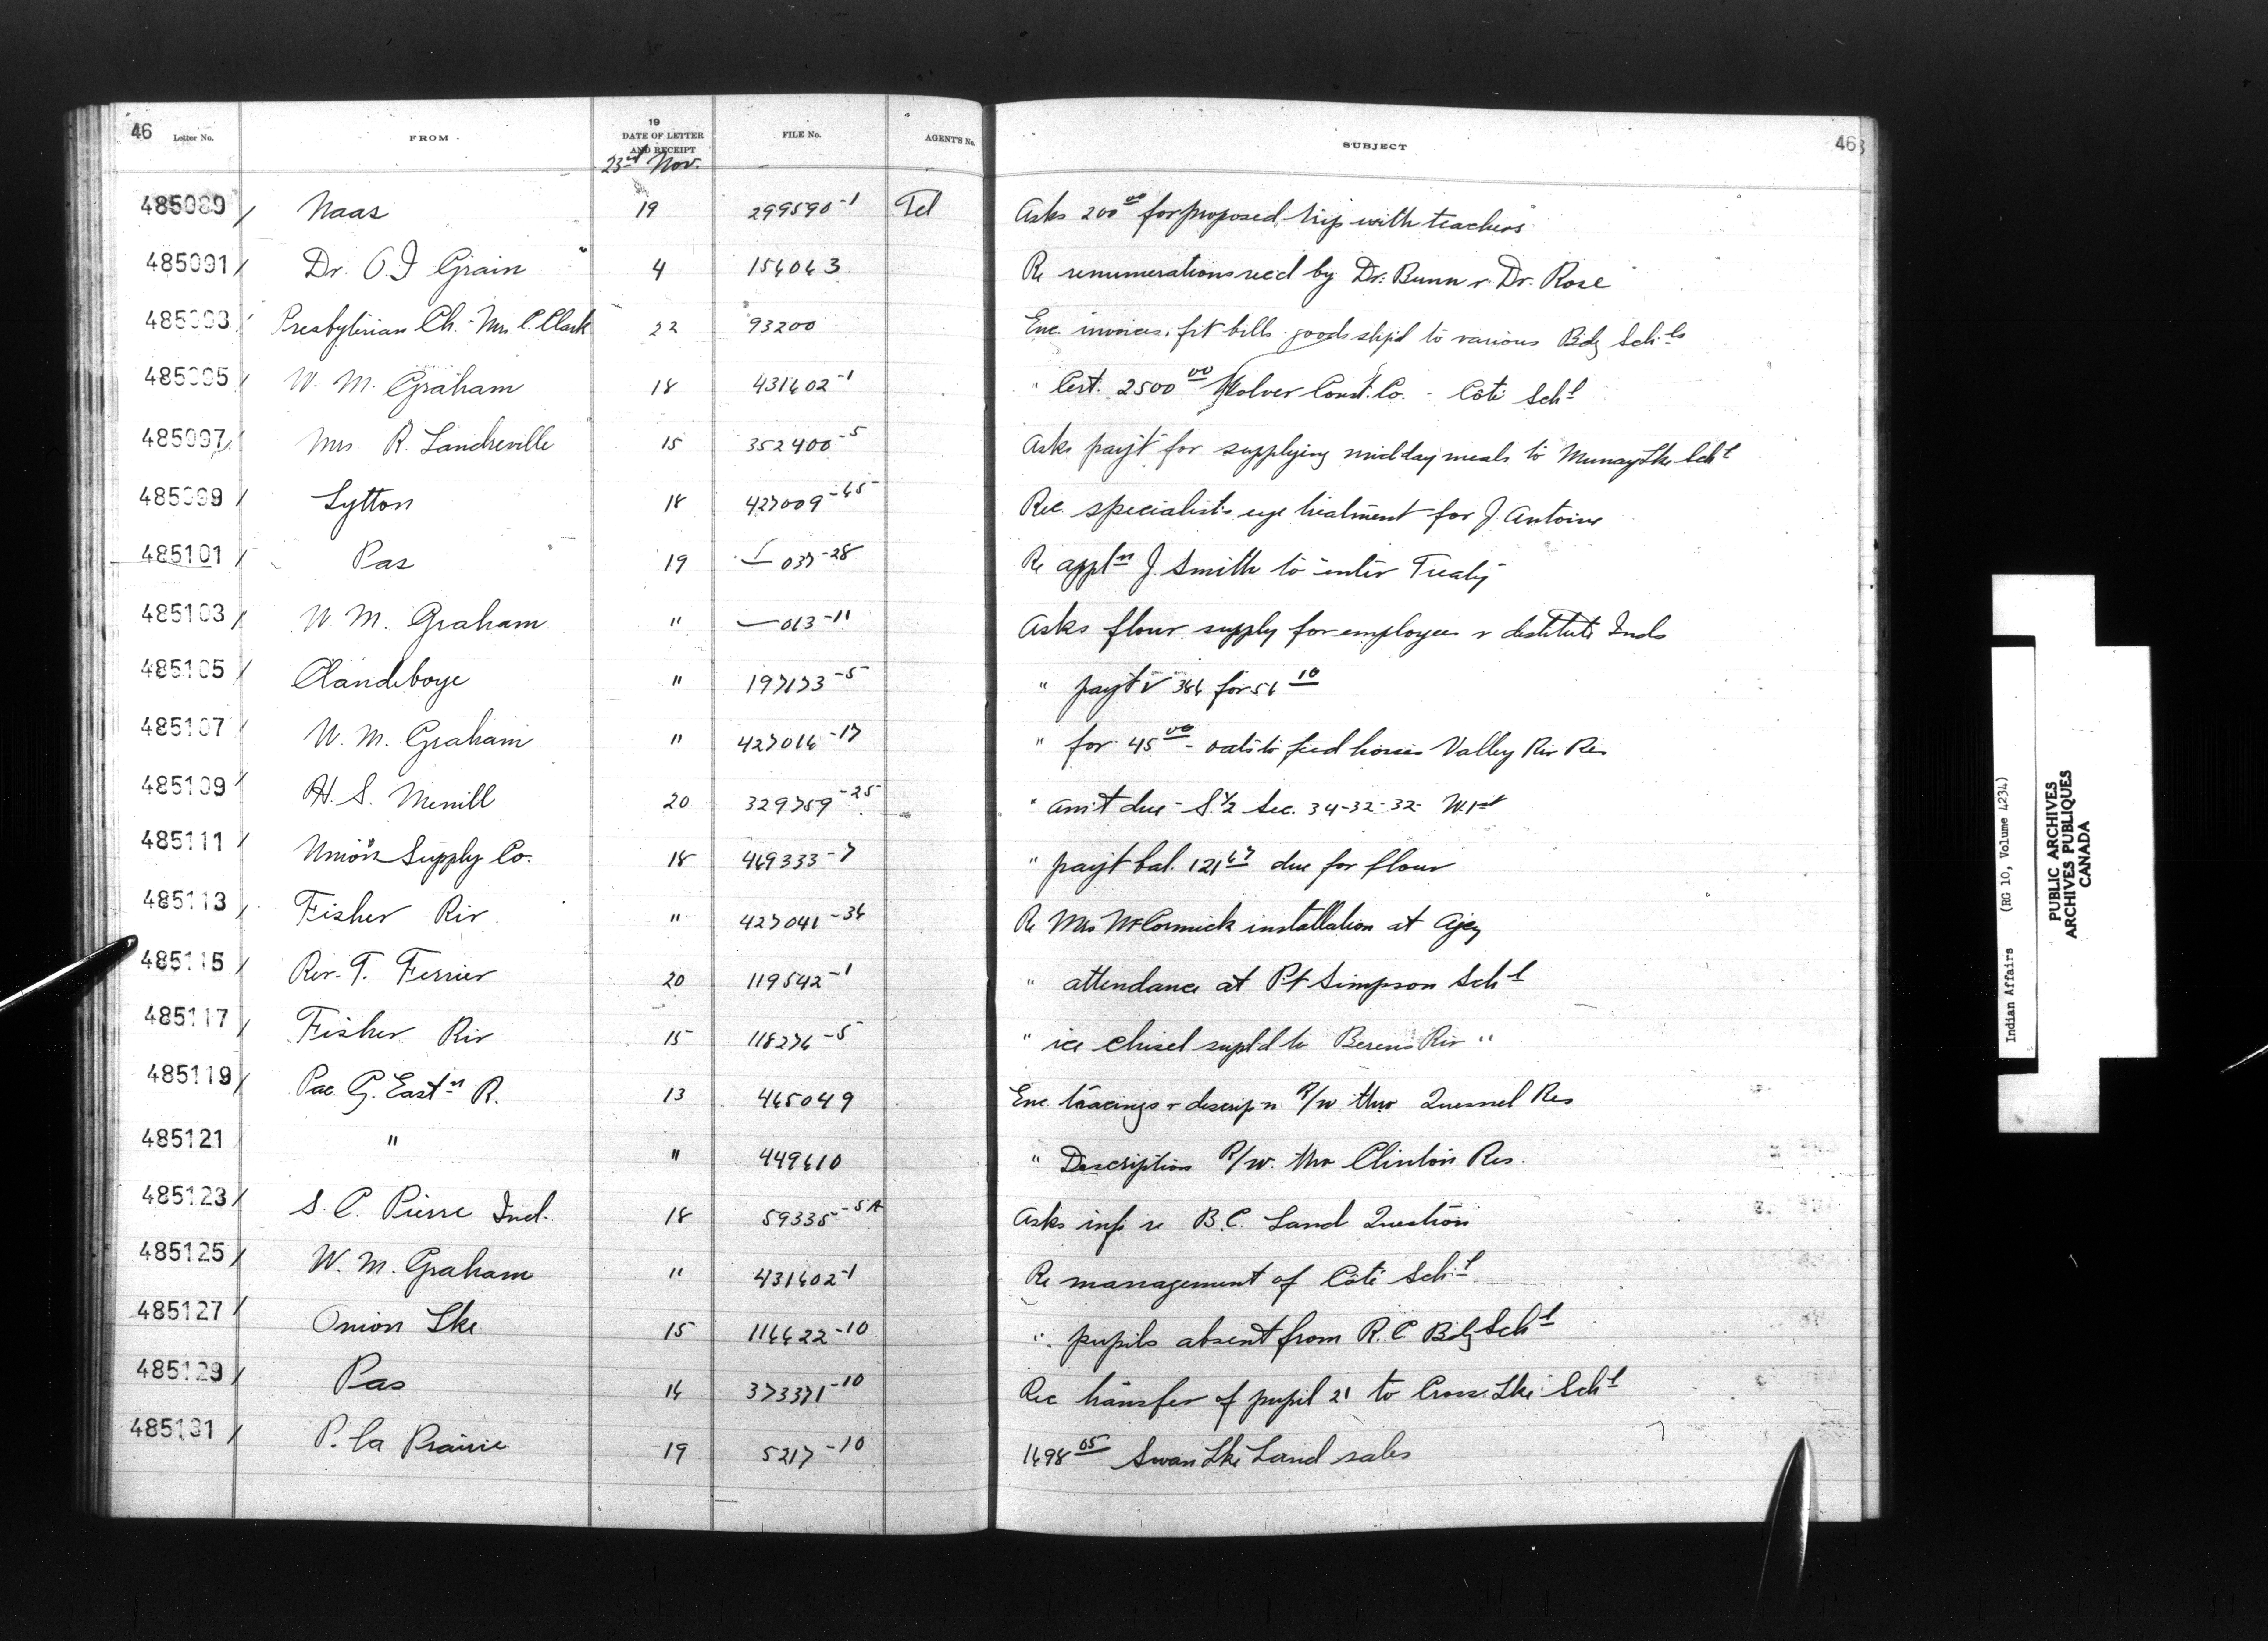 46 Letter No. FROM 19 DATE OF LETTER AND RECEIPT FILE No. AGENT'S No. SUBJECT 46
23rd Nov.
485089 / Naas 19 299590-1 Tel Asks 200 00 for proposed trip with teachers
485091 / Dr. O I Grain 4 154063 Re renumerations recd by Dr. Bunn & Dr. Rose
485093 / Presbyterian Ch. - Mrs. C. Clark 22 93200 Enc. invoices, frt bills goods ship'd to various Bdg Schls
485095 / W. M. Graham 18 431602-1 " Cert. 2500 00 Construct. Co. - Coté Schl
485097 / Mrs R. Landreville 15 352400-5 Asks payt for supplying midday meals to Murray Lke Schl
485099 / Lytton 18 427009-65 Rec specialists eye treatment for J. Antoine
485101 / Pas 19 — 037-28 Re appln J. Smith to enter Treaty
485103 / W. M. Graham " — 013-11 Asks flour supply for employees & destitute Inds
485105 / Clandeboye " 197173-5 " payt V 366 for 56 10
485107 / W. M. Graham " 427016-17 " for 45 00 - oats to feed horses Valley Riv Res
485109 / H. S. Merrill 20 329759-25 " am't due - S. 1/2 Sec. 34-32-32- W. 1st
485111 / Union Supply Co. 18 469333-7 " payt bal. 121 67 due for flour
485113 / Fisher Riv. " 427041-36 Re Mrs McCormick installation at Agcy
485115 / Rev. T. Ferrier 20 119542-1 " attendance at Pt Simpson Schl
485117 / Fisher Riv 15 118276-5 " ice chisel supld to Berens Riv "
485119 / Pac G. Eastn R. 13 465049 Enc. tracings & descrip'n R/w thro Quesnel Res
485121 " " 449610 " Description R/w. thro Clinton Res.
485123 / S. C. Pierre Ind. 18 59335-5A Asks inf re B.C. Land Question
485125 / W. M. Graham " 431602-1 Re management of Coté Schl
485127 / Onion Lke 15 116622-10 " pupils absent from R. C Bdg Schl
485129 / Pas 16 373371-10 Rec transfer of pupil 21 to Cross Lke Schl
485131 / P. la Prairie 19 5217-10 1698 05 Swan Lke Land sales
Indian Affairs (RG 10, Volume 4234)
PUBLIC ARCHIVES
ARCHIVES PUBLIQUES
CANADA